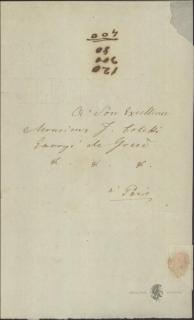 400
80
200
120
A Son Excellence
Monsieur J. Coletti
Envoyé de Grèce
&. &. &.
à Paris